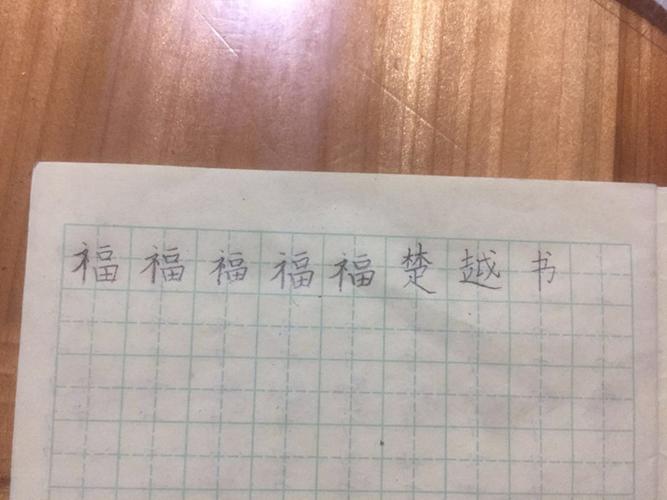 福福福福福楚越书